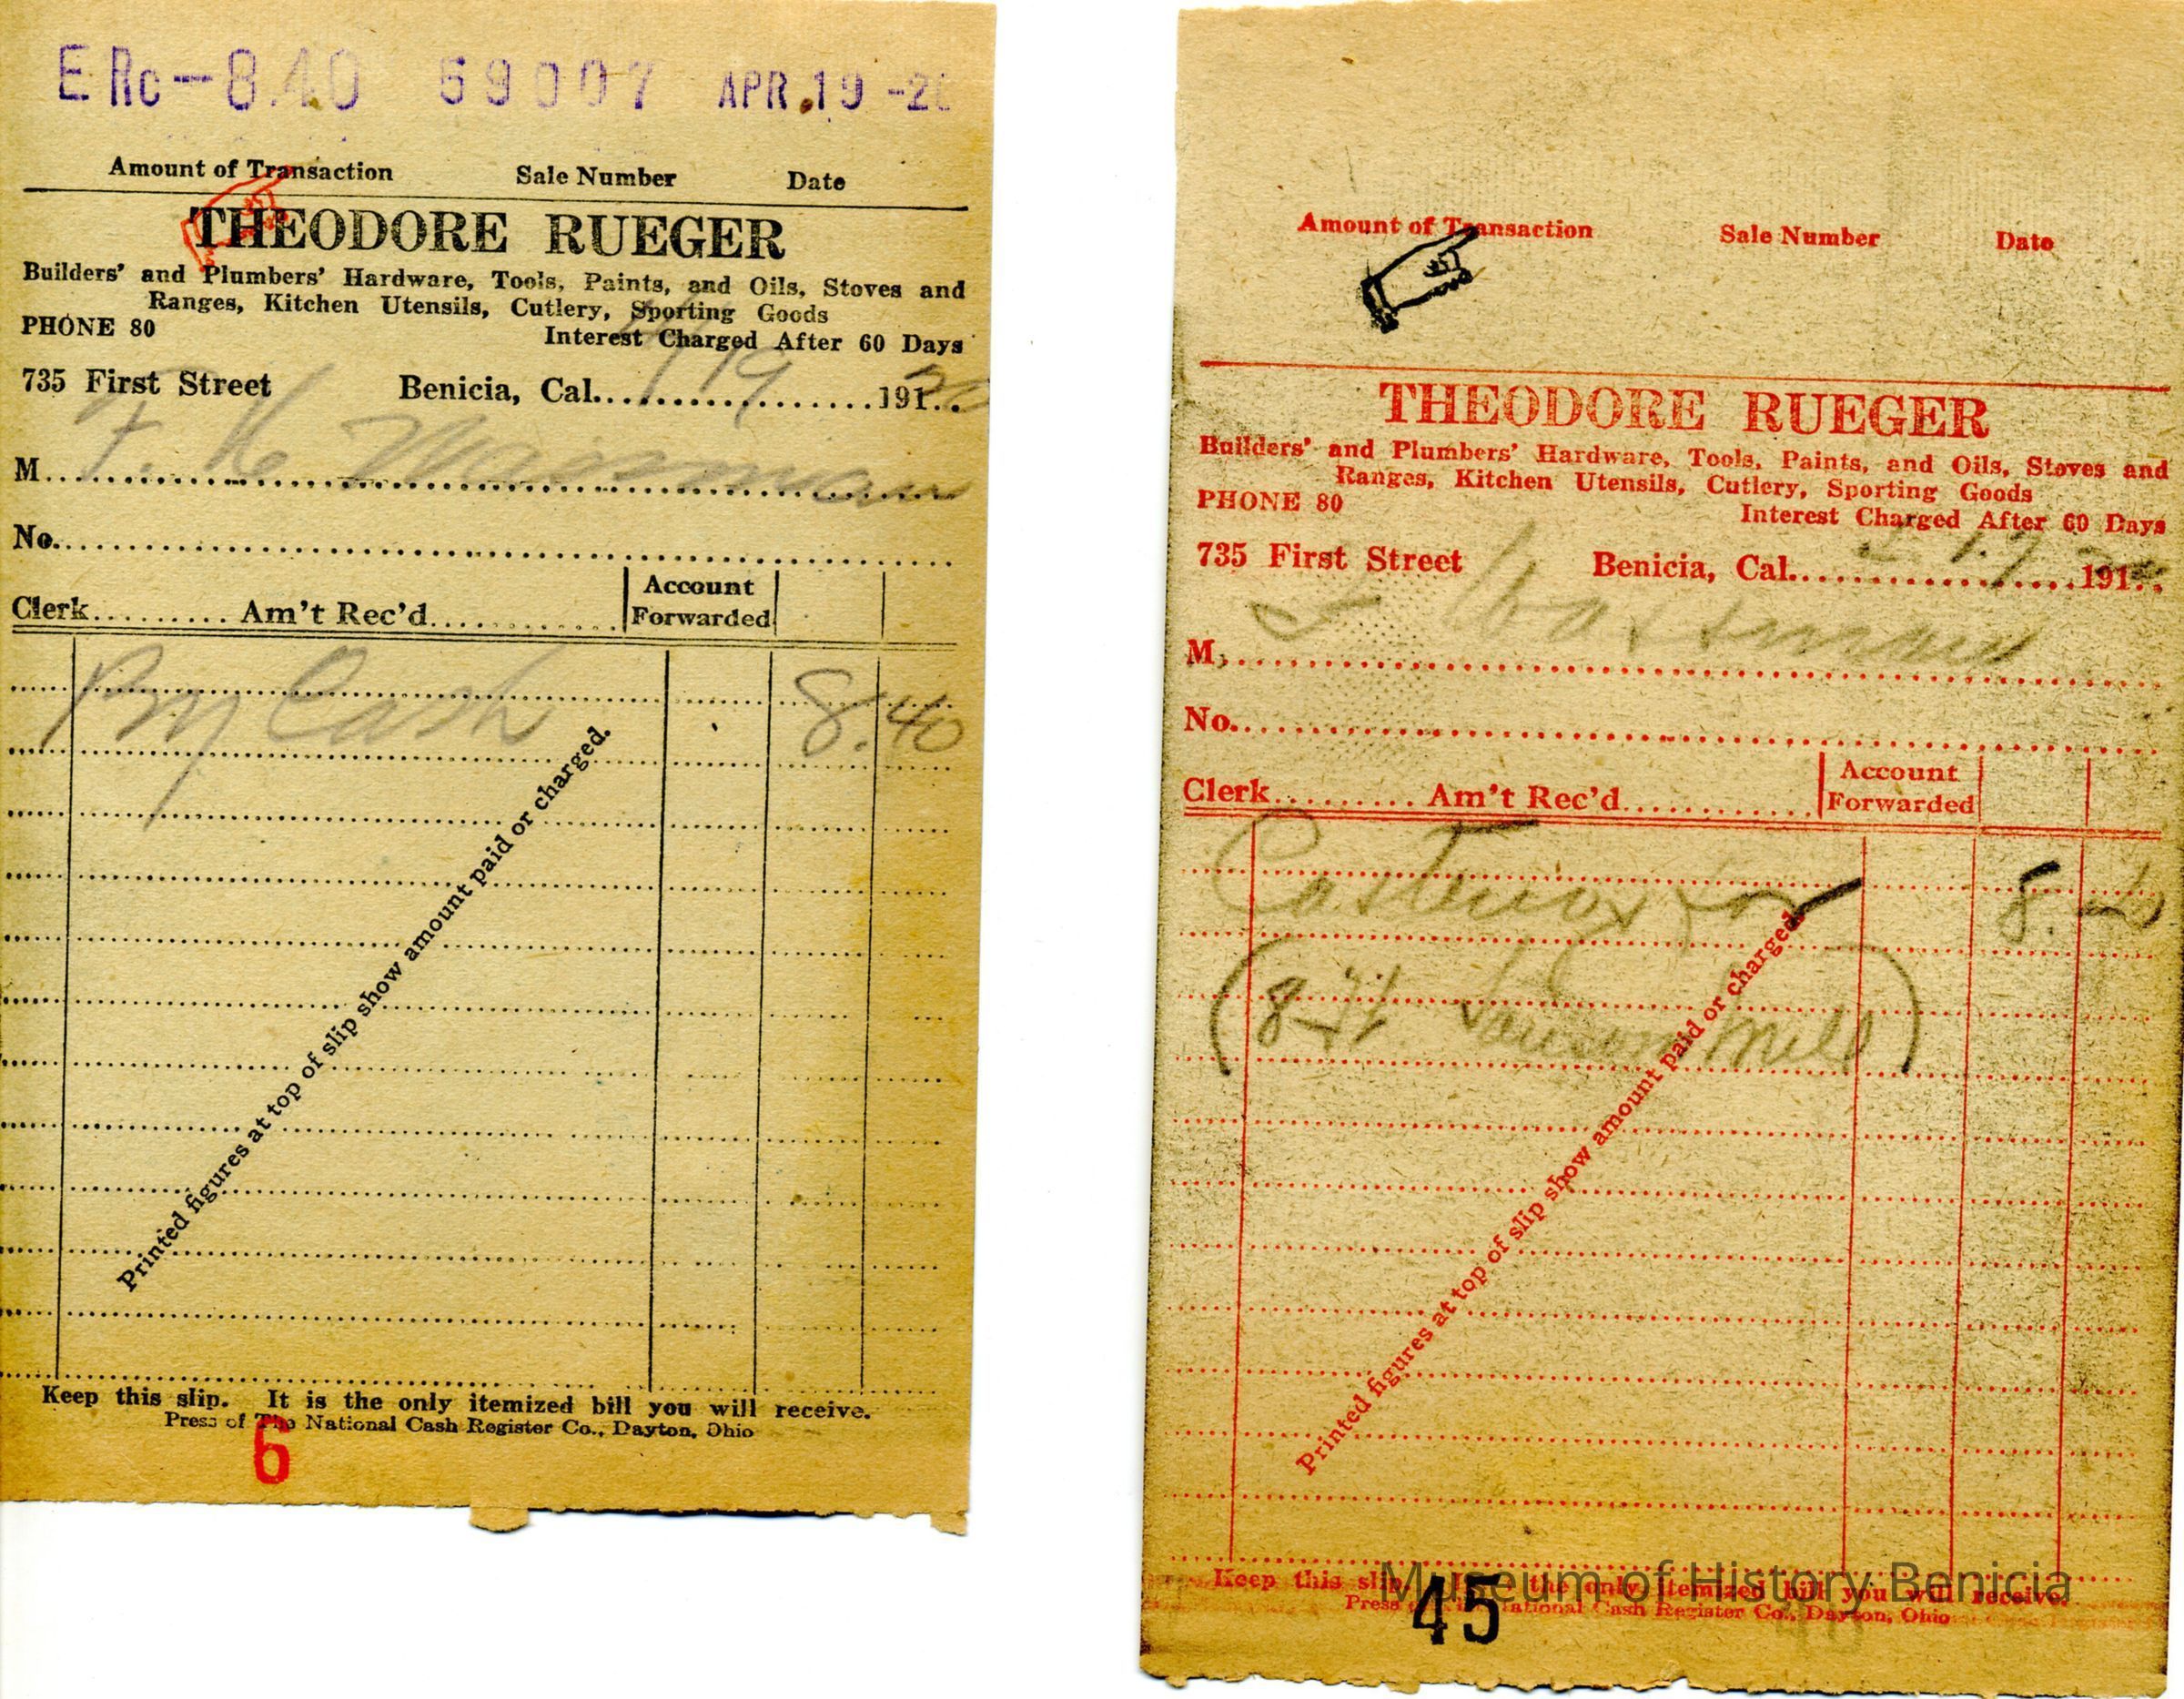 E Rc-8.40 59007 APR.19-20
Amount of Transaction Sale Number Date
THEODORE RUEGER
Builders' and Plumbers' Hardware, Tools, Paints, and Oils, Stoves and
Ranges, Kitchen Utensils, Cutlery, Sporting Goods
PHONE 80 Interest Charged After 60 Days
735 First Street Benicia, Cal. 4/19 191 20
M. F.
No.
Clerk Am't Rec'd Account Forwarded
By Cash 8.40
Printed figures at top of slip show amount paid or charged.
Keep this slip. It is the only itemized bill you will receive.
Press of The National Cash Register Co., Dayton, Ohio
6
Amount of Transaction Sale Number Date
THEODORE RUEGER
Builders' and Plumbers' Hardware, Tools, Paints, and Oils, Stoves and
Ranges, Kitchen Utensils, Cutlery, Sporting Goods
PHONE 80 Interest Charged After 60 Days
735 First Street Benicia, Cal. 191
M.
No.
Clerk Am't Rec'd Account Forwarded
for 8.
(8 ft Mill)
Printed figures at top of slip show amount paid or charged.
Keep this slip. It is the only itemized bill you will receive.
Press of The National Cash Register Co., Dayton, Ohio
45
Museum of History Benicia